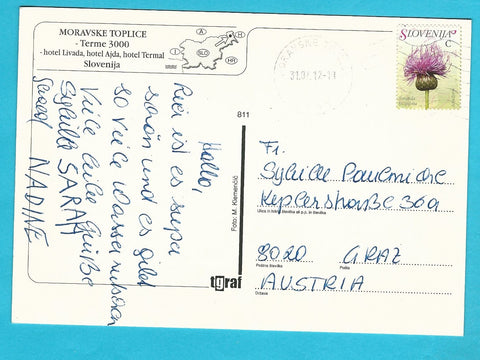 MORAVSKE TOPLICE
- Terme 3000
- hotel Livada, hotel Ajda, hotel Termal
Slovenija
A
H
I
SLO
HR
Hallo,
Hier ist es super
schön und es gibt
so viele Wasserrutschen
Viele liebe Grüße
Sybille SARAH
NADINE
811
Foto: M. Klemenčič
tgraf
SLOVENIJA
C
31.07.12-11
Fr.
Sybille
Keplerstraße 30a
Ulica in hišna številka ali p.p. in številka
8020 GRAZ
Poštna številka Pošta
AUSTRIA
Država